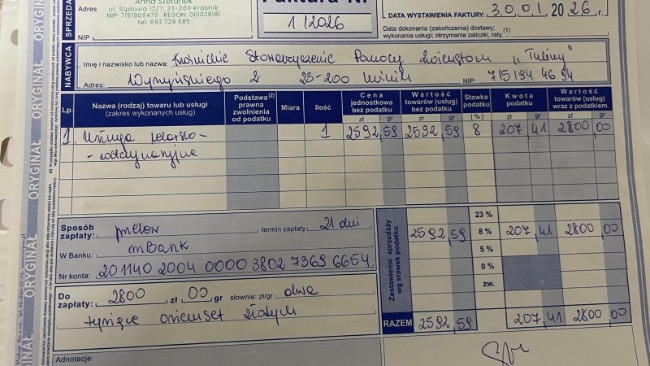 Anna Stefanek
ul. Sądowa 12/7, 23-200 Kraśnik
NIP: 7151908470 REGON: 061028181
tel. 697 729 885
Adres
NIP:
SPRZEDA
Faktura Nr
1/2026
30.01.2026 r.
DATA WYSTAWIENIA FAKTURY:
Data dokonania (zakończenia) dostawy,
wykonania usługi; otrzymania zaliczki, raty,
NABYWCA
Imię i nazwisko lub nazwa: Kraśnickie Stowarzyszenie Pomocy Zwierzętom "Tulimy"
Adres: Wyszyńskiego 2 23-200 Kraśnik NIP: 715 194 46 94
Lp. Nazwa (rodzaj) towaru lub usługi (zakres wykonanych usług) Podstawa (2) prawna zwolnienia od podatku Miara Ilość Cena jednostkowa bez podatku Wartość towarów (usług) bez podatku Stawka podatku Kwota podatku Wartość towarów (usług) wraz z podatkiem
zł gr zł gr (%) zł gr zł gr
1. Usługa lekarsko- 1 2592,59 2592,59 8 207,41 2800,00
- weterynaryjna
Sposób zapłaty: przelew termin zapłaty: 21 dni
W Banku: mBank
Nr konta: 20 1140 2004 0000 3802 7369 6654
Do zapłaty: 2800 zł 00 gr słownie: zł/gr dwa
tysiące osiemset złotych
Zestawienie sprzedaży wg stawek podatku
23 %
2592,59 8 % 207,41 2800,00
5 %
0 %
zw.
RAZEM 2592,59 207,41 2800,00
Adnotacje:
ORYGINAŁ ORYGINAŁ ORYGINAŁ ORYGINAŁ